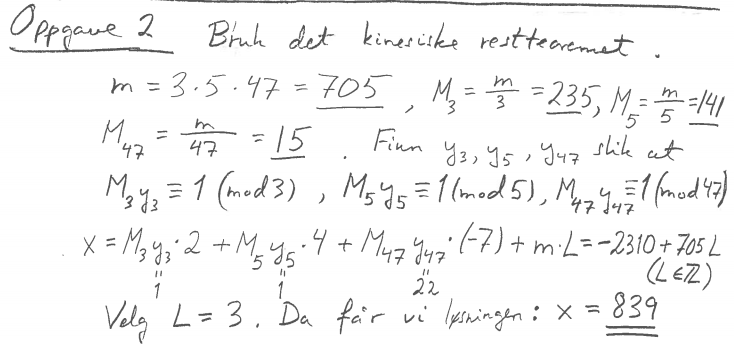 Oppgave 2 Bruk det kinesiske restteoremet.
m = 3·5·47 = 705, M₃ = m/3 = 235, M₅ = m/5 = 141
M₄₇ = m/47 = 15. Finn y₃, y₅, y₄₇ slik at
M₃y₃ ≡ 1 (mod 3), M₅y₅ ≡ 1 (mod 5), M₄₇y₄₇ ≡ 1 (mod 47)
x = M₃y₃·2 + M₅y₅·4 + M₄₇y₄₇·(-7) + m·L = -2310 + 705L
" " " (L ∈ ℤ)
1 1 22
Velg L = 3. Da får vi løsningen: x = 839